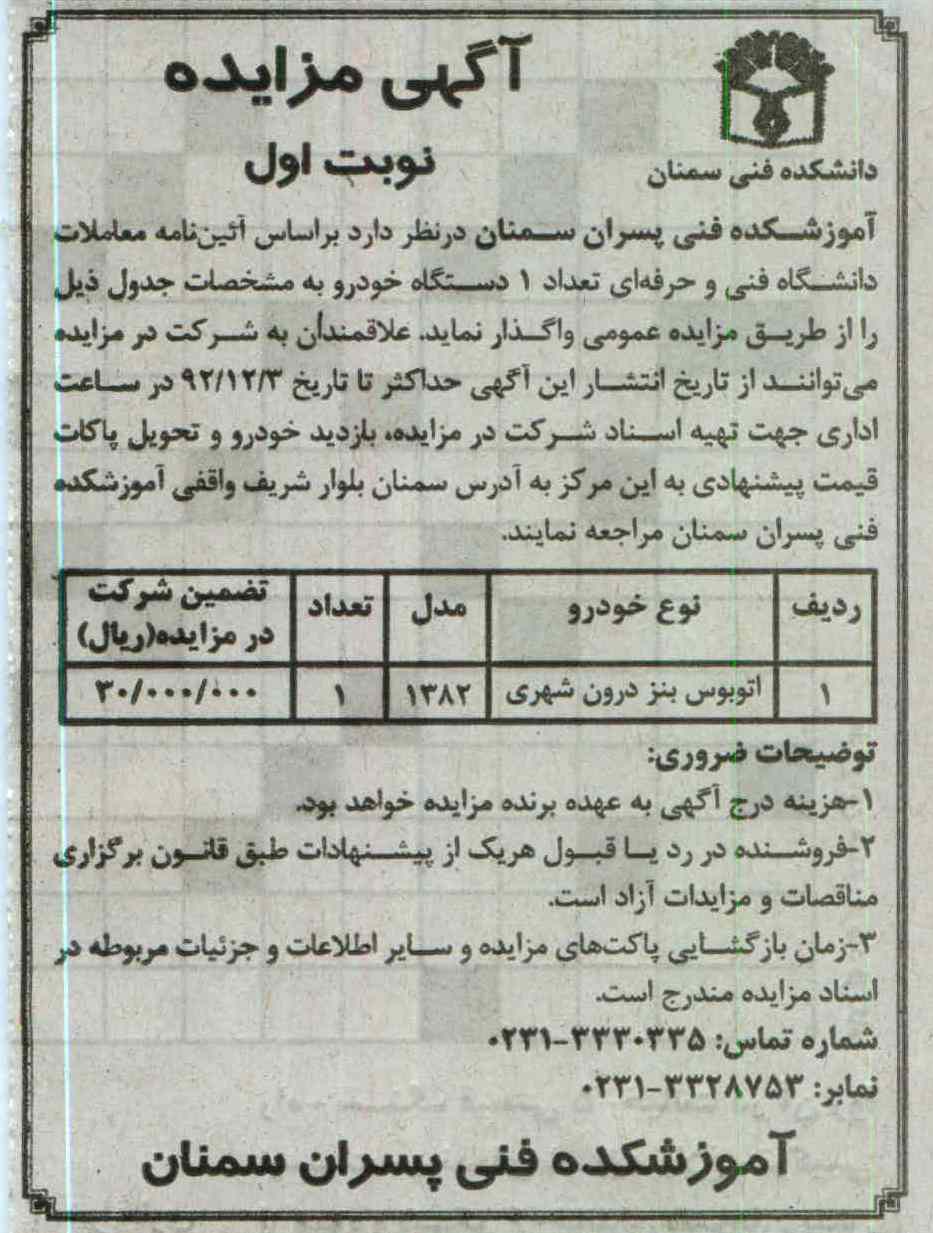 آگهی مزایده
نوبت اول
دانشکده فنی سمنان
آموزشکده فنی پسران سمنان درنظر دارد براساس آئین‌نامه معاملات
دانشگاه فنی و حرفه‌ای تعداد ۱ دستگاه خودرو به مشخصات جدول ذیل
را از طریق مزایده عمومی واگذار نماید. علاقمندان به شرکت در مزایده
می‌توانند از تاریخ انتشار این آگهی حداکثر تا تاریخ ۹۲/۱۲/۳ در ساعت
اداری جهت تهیه اسناد شرکت در مزایده، بازدید خودرو و تحویل پاکات
قیمت پیشنهادی به این مرکز به آدرس سمنان بلوار شریف واقفی آموزشکده
فنی پسران سمنان مراجعه نمایند.
ردیف نوع خودرو مدل تعداد تضمین شرکت در مزایده(ریال)
۱ اتوبوس بنز درون شهری ۱۳۸۲ ۱ ۳۰/۰۰۰/۰۰۰
توضیحات ضروری:
۱-هزینه درج آگهی به عهده برنده مزایده خواهد بود.
۲-فروشنده در رد یا قبول هریک از پیشنهادات طبق قانون برگزاری
مناقصات و مزایدات آزاد است.
۳-زمان بازگشایی پاکت‌های مزایده و سایر اطلاعات و جزئیات مربوطه در
اسناد مزایده مندرج است.
شماره تماس: ۳۳۳۰۳۳۵-۰۲۳۱
نمابر: ۳۳۲۸۷۵۳-۰۲۳۱
آموزشکده فنی پسران سمنان